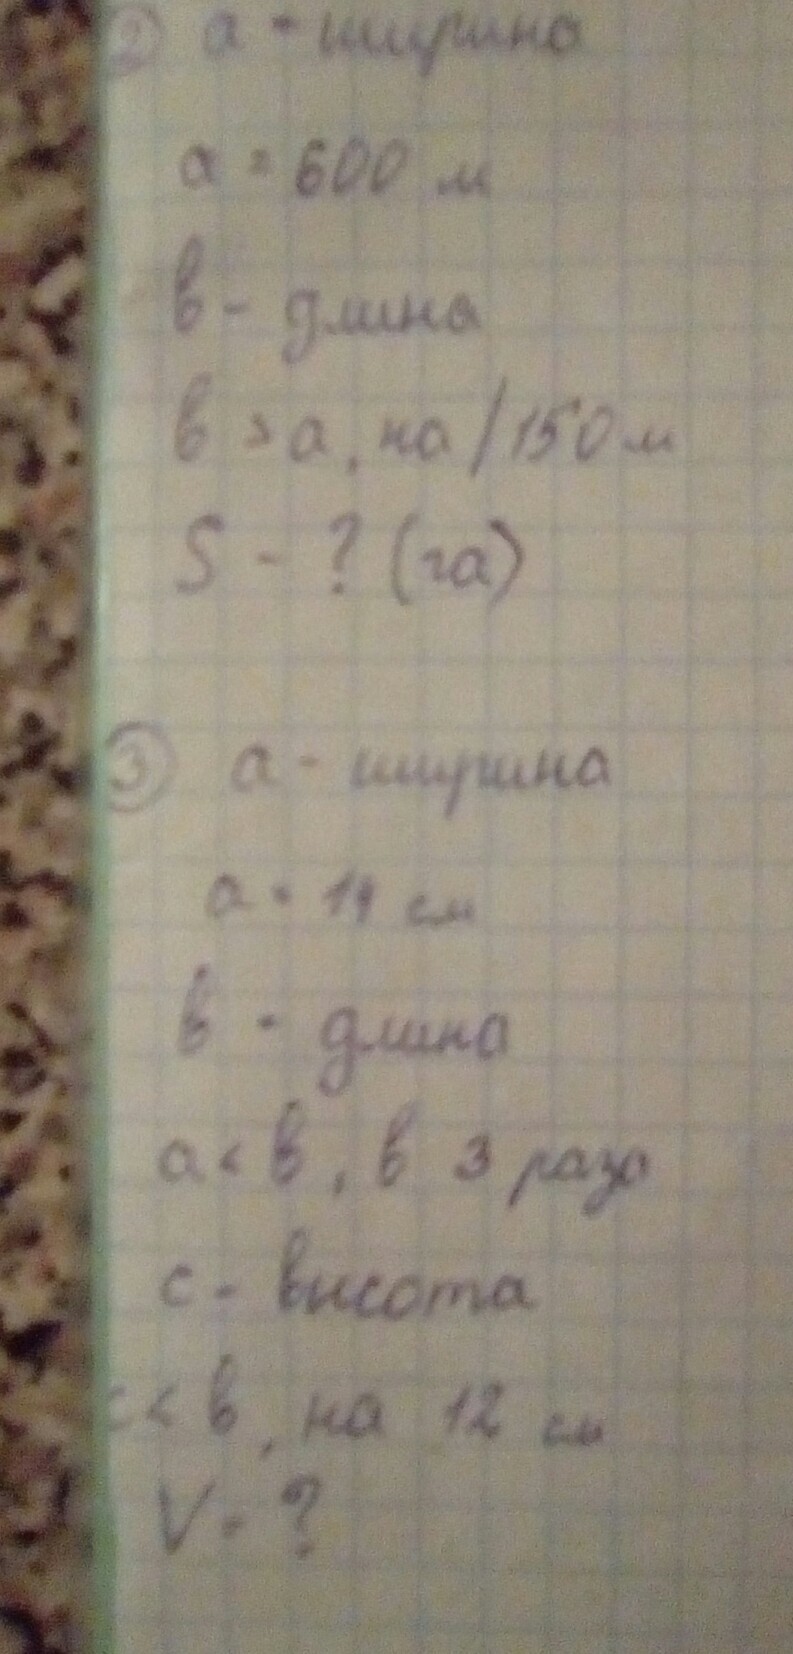 2 а - ширина
а = 600 м
в - длина
в > а, на / 150 м
S - ? (га)
3 а - ширина
а = 14 см
в - длина
а < в, в 3 раза
с - высота
с < в, на 12 см
V - ?